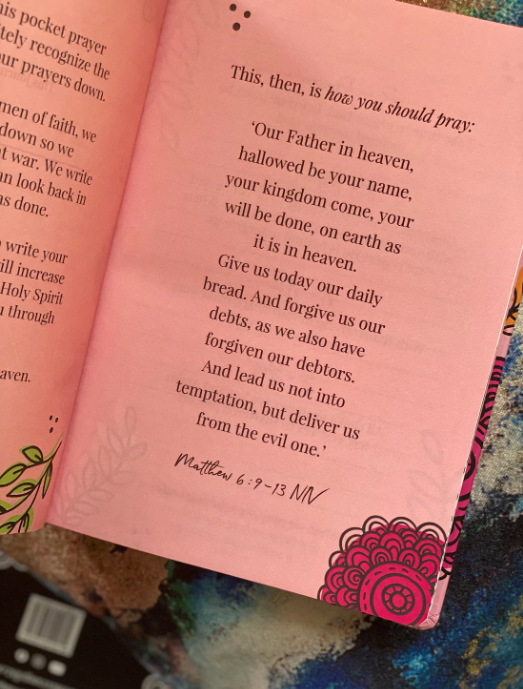 his pocket prayer
tely recognize the
ur prayers down.
men of faith, we
down so we
t war. We write
n look back in
as done.
write your
ill increase
Holy Spirit
u through
aven.
This, then, is how you should pray:
‘Our Father in heaven,
hallowed be your name,
your kingdom come, your
will be done, on earth as
it is in heaven.
Give us today our daily
bread. And forgive us our
debts, as we also have
forgiven our debtors.
And lead us not into
temptation, but deliver us
from the evil one.’
Matthew 6:9-13 NIV